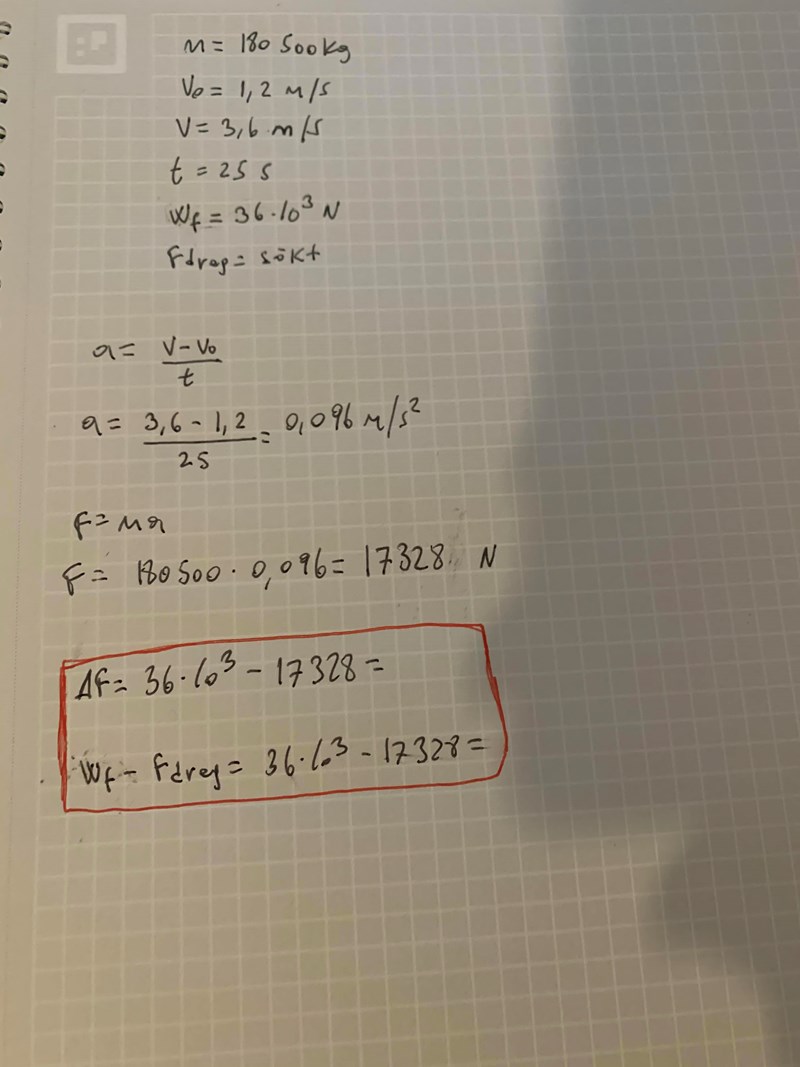 m = 180 500kg
V₀ = 1,2 m/s
V = 3,6 m/s
t = 25 s
Wf = 36·10³ N
Fdrag = sökt
a = (V-V₀)/t
a = (3,6 - 1,2)/25 = 0,096 m/s²
F = ma
F = 180 500 · 0,096 = 17328 N
ΔF = 36·10³ - 17328 =
Wf - Fdrag = 36·10³ - 17328 =